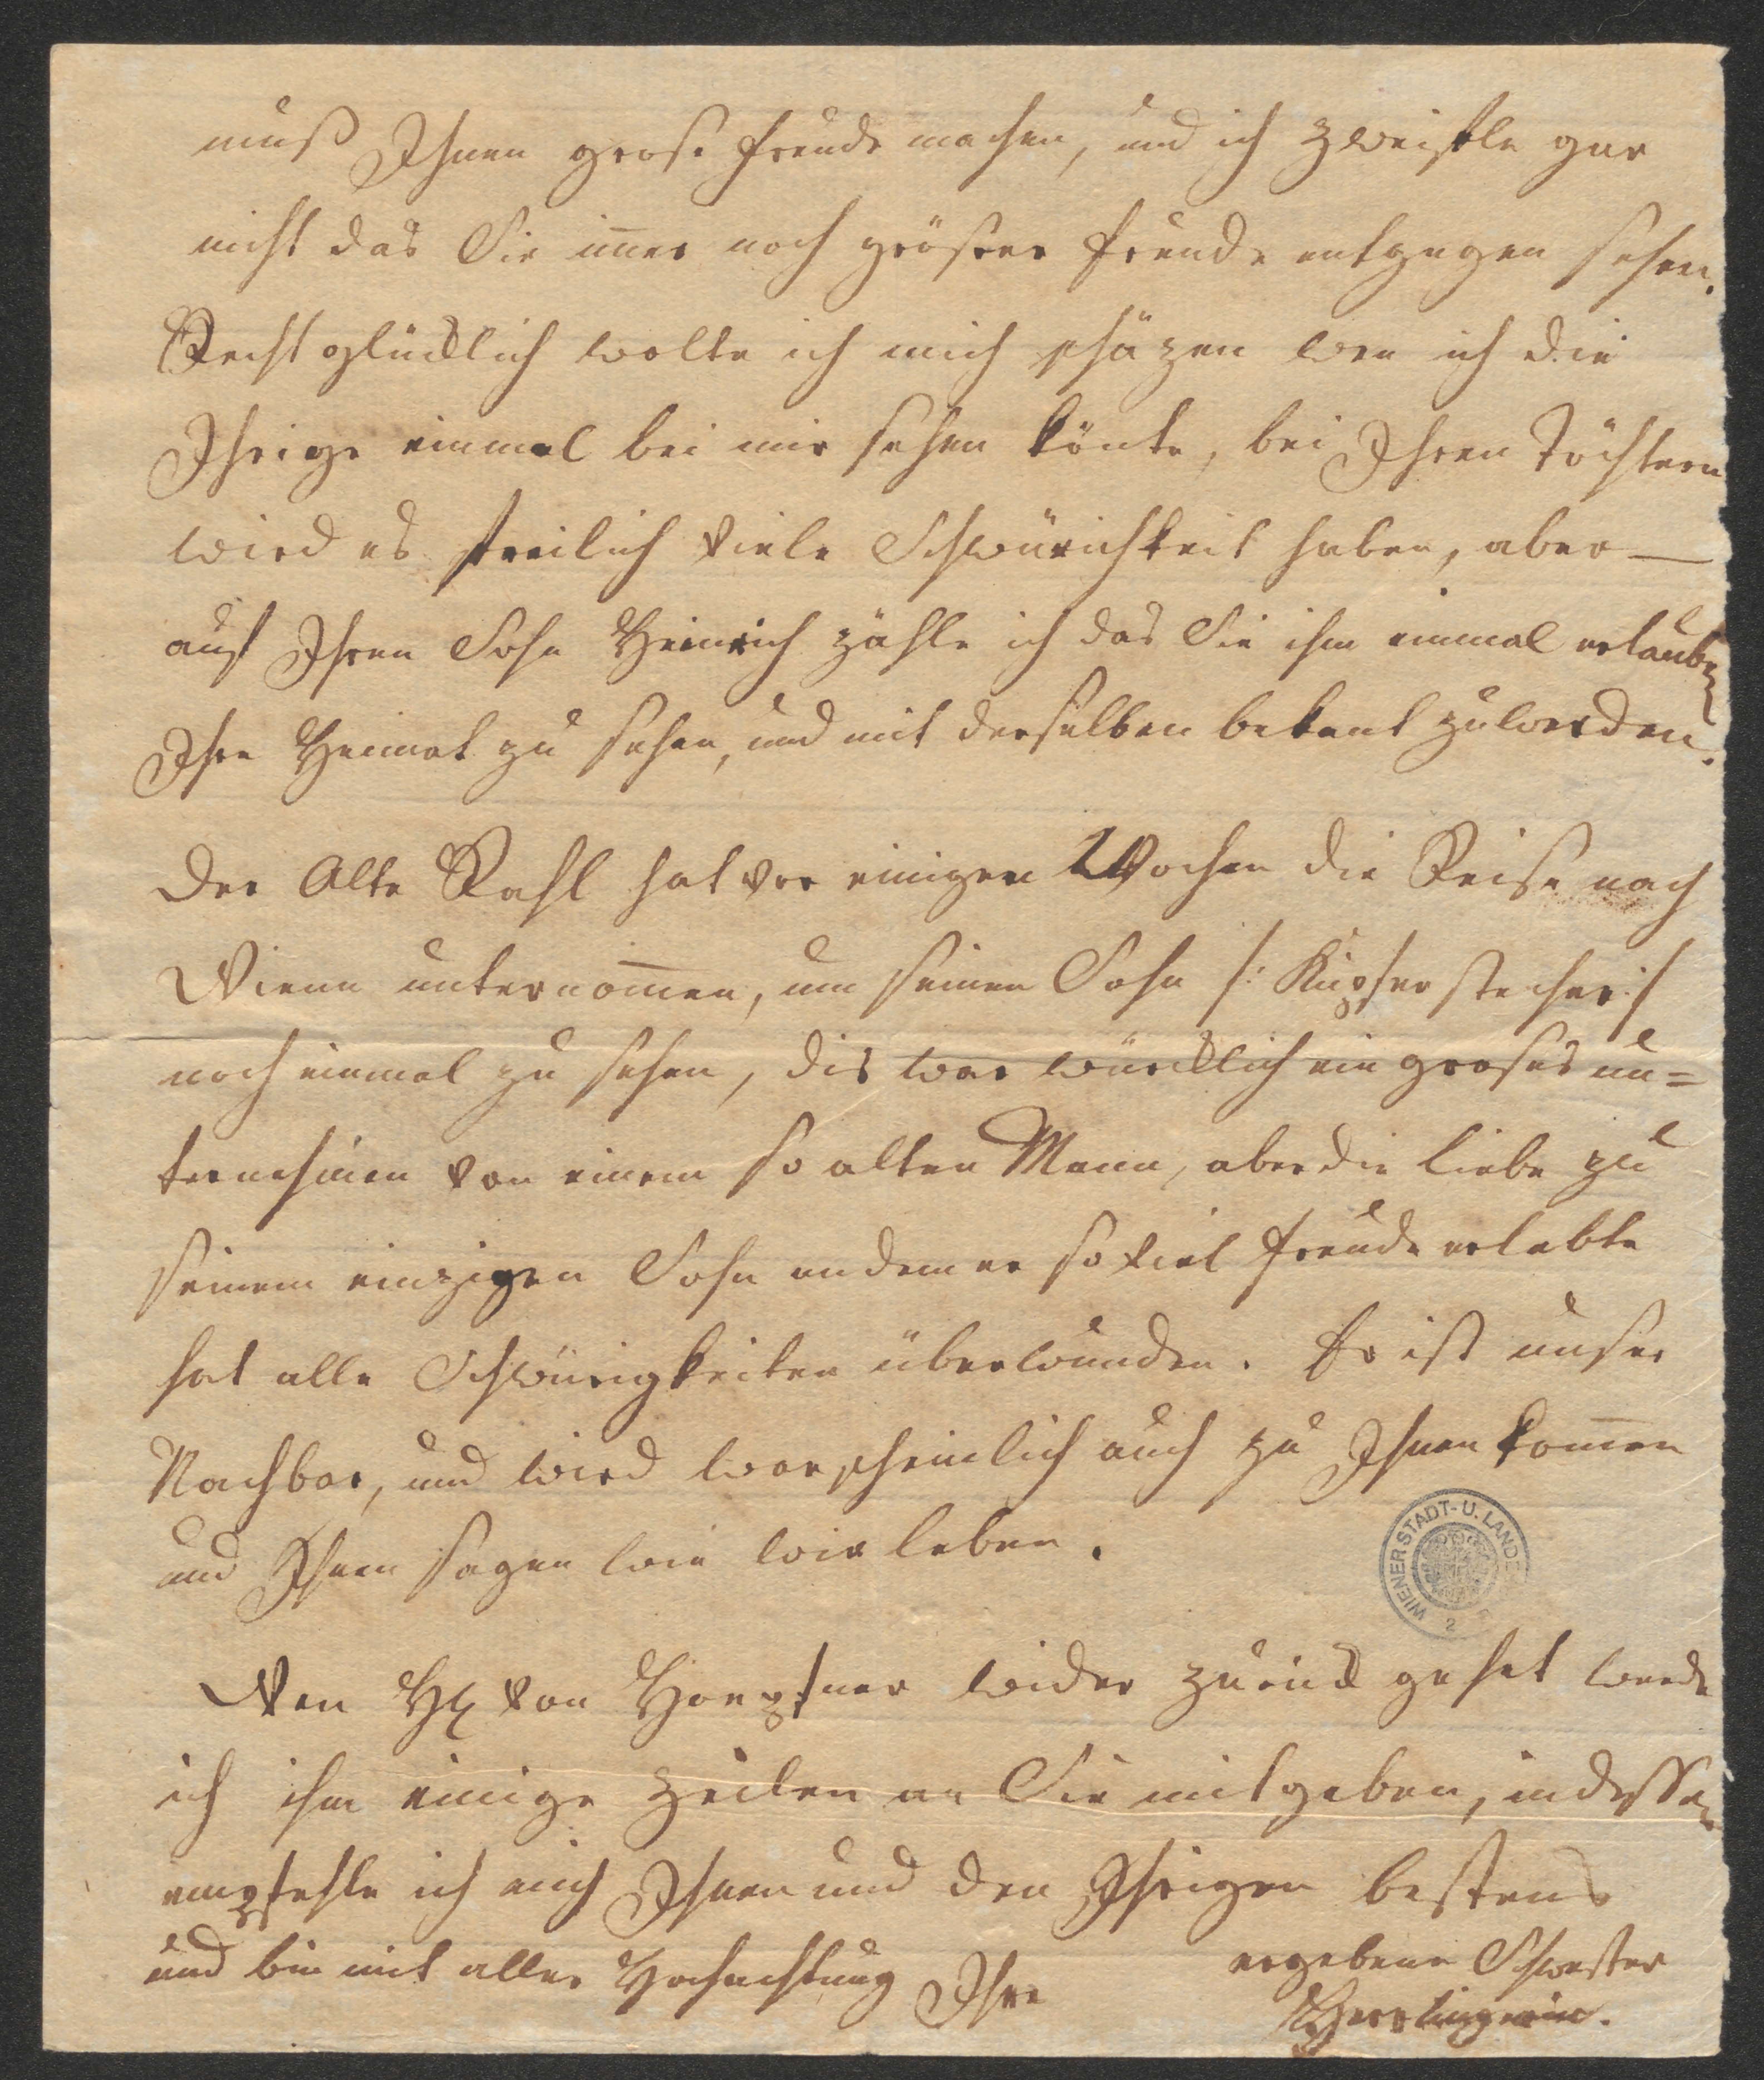 muß Ihnen große freude machen, und ich zweifle gar
nicht das Sie im̅er noch größrer freude entgegen sehen.
Recht glücklich wolte ich mich schäzen wen ich die
Ihrige einmal bei mir sehen könte, bei Ihren Töchtern
wird es freilich viele Schwürichkeit haben, aber —
auf Ihren Sohn Heinrich zähle ich das Sie ihm einmal erlauben
Ihre Heimat zu sehen, und mit derselben bekant zuwerden.
Der Alte Rahl hat vor einigen Wochen die Reise nach
Wienn unternom̅en, um seinen Sohn /: Kupferstecher :/
noch einmal zu sehen, dis war würcklich ein großes un=
ternehmen von einem so alten Mann, aber die liebe zu
seinem einzigen Sohn an dem er so viel freude erlebte
hat alle Schwürigkeiten überwunden. Er ist unser
Nachbar, und wird warscheinlich auch zu Ihnen kom̅en
und Ihnen sagen wie wir leben.
WIENER STADT- U. LANDE
2
Wen H von Haupfner wider zurück gehet werde
ich ihm einige Zeilen an Sie mitgeben, indessen
empfehle ich mich Ihnen und den Ihrigen bestens
und bin mit aller Hochachtung Ihre
ergebene Schwester